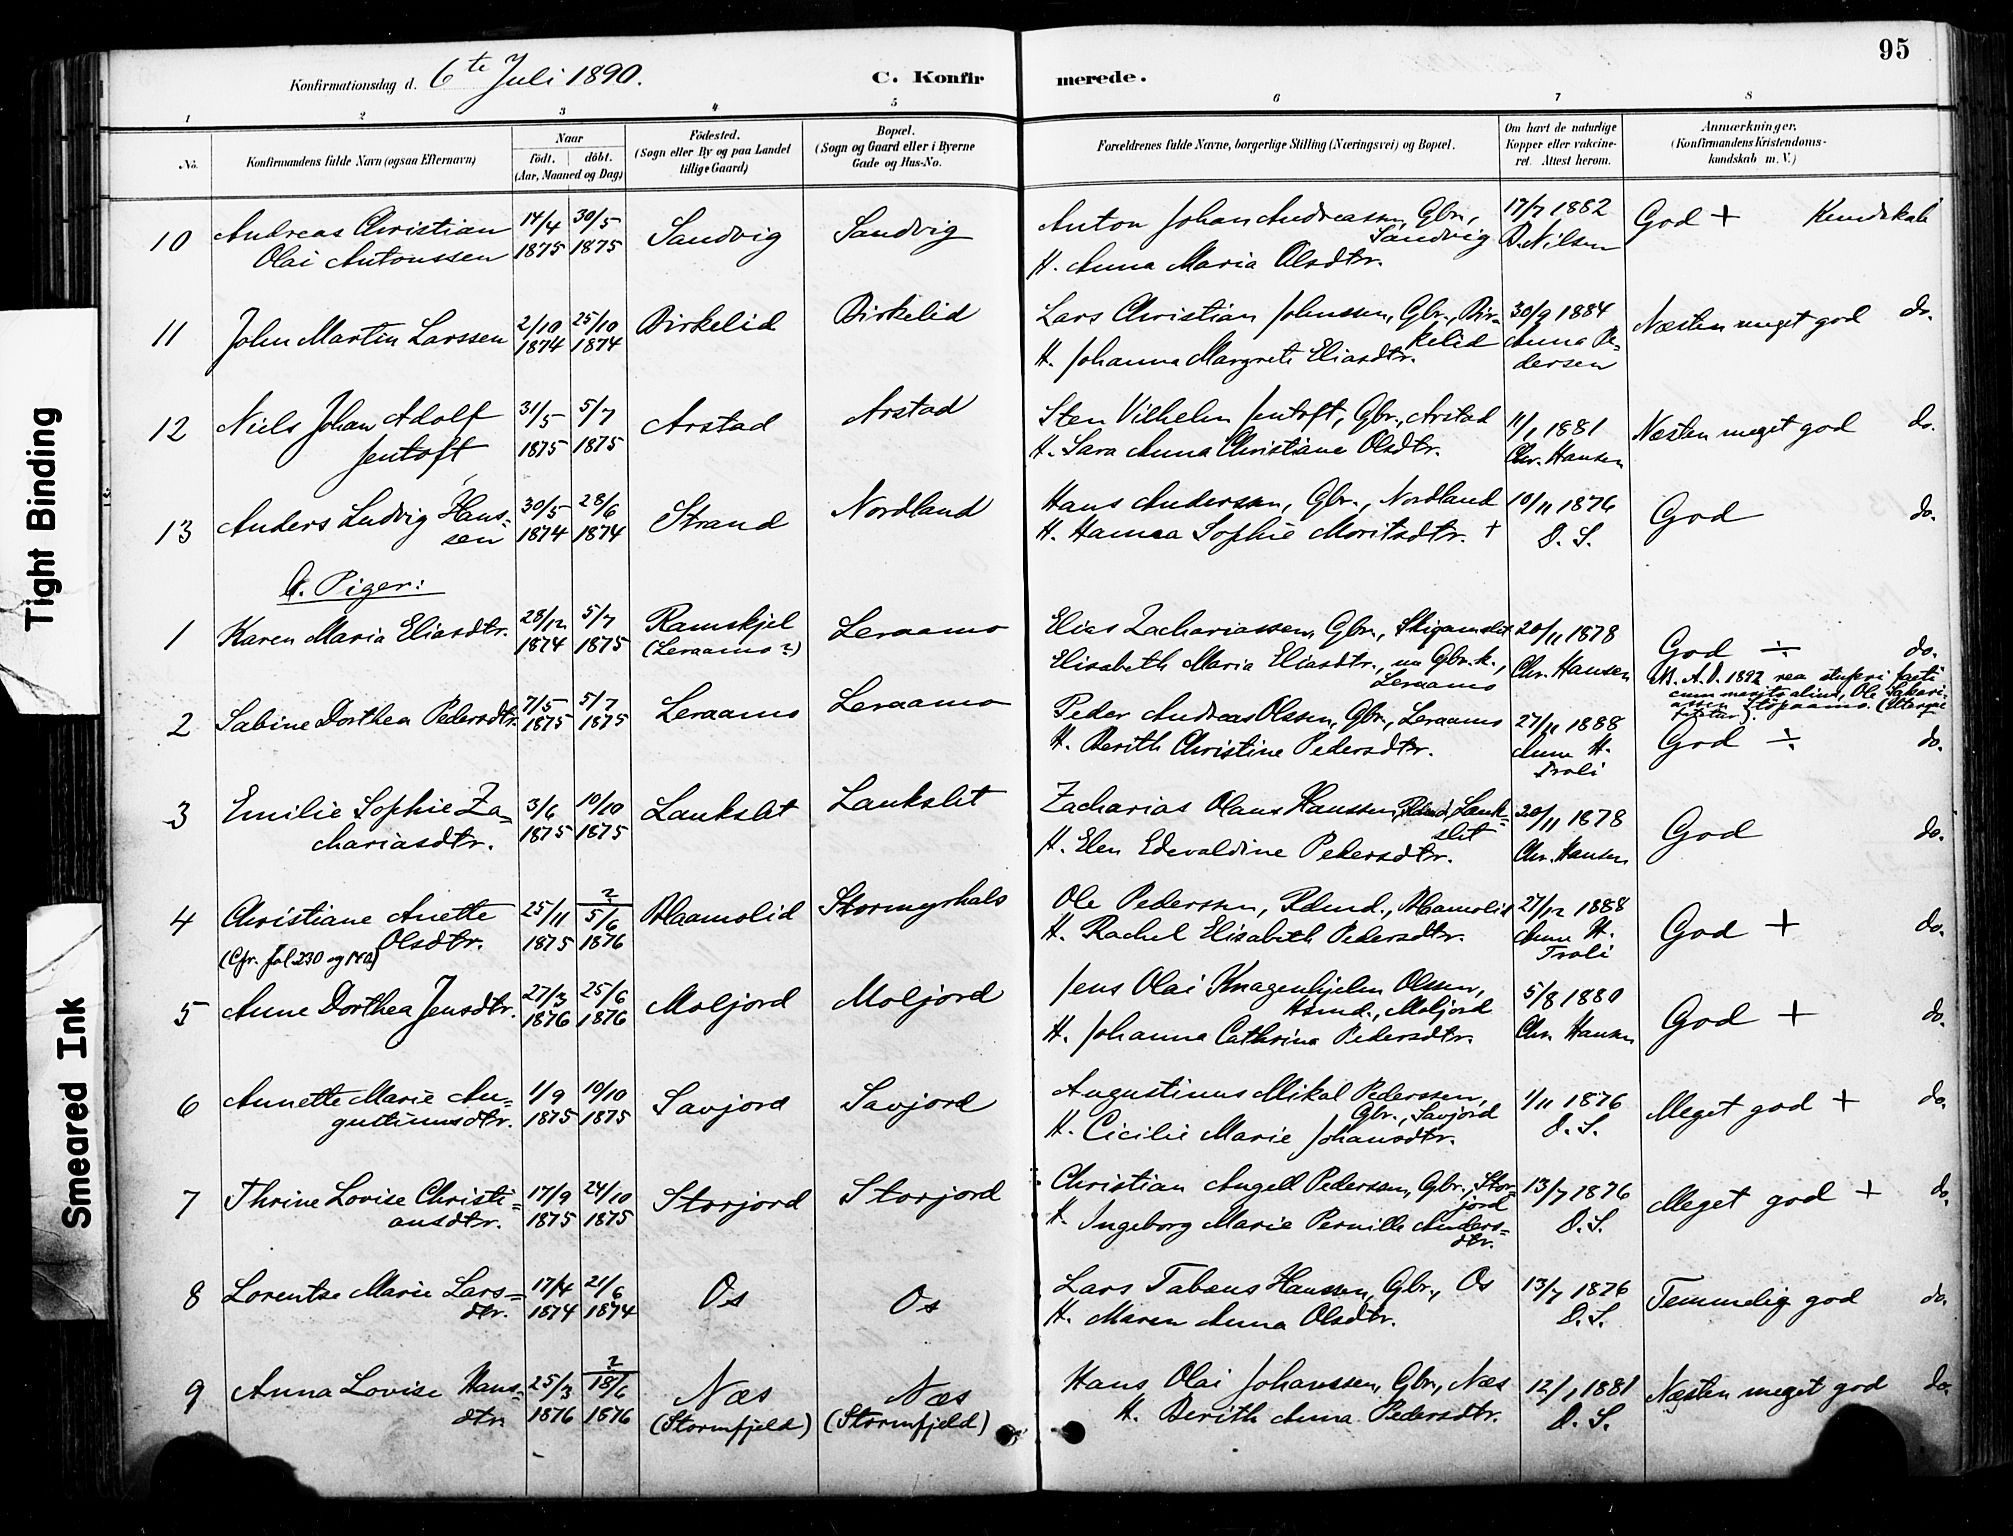 95
Konfirmationsdag d. 6te Juli 1890.
C. Konfirmerede.
1 2 3 4 5 6 7 8
No.
Konfirmandens fulde Navn (ogsaa Efternavn)
Naar
födt. döbt.
(Aar, Maaned og Dag)
Födested.
(Sogn eller By og paa Landet
tillige Gaard)
Bopæl.
(Sogn og Gaard eller i Byerne
Gade og Hus-No.
Forældrenes fulde Navne, borgerlige Stilling (Næringsvei) og Bopæl.
Om havt de naturlige
Kopper eller vaccine-
ret. Attest herom.
Anmærkninger.
(Konfirmandens Kristendoms-
kundskab m. V.)
10 Andreas Christian 14/4 30/5 Sandvig Sandvig Anton Johan Andreassen, Gbr., 17/7 1882 God + Kundskab
Olai Antonssen 1875 1875 Sandvig D. Nilsen
H. Anna Maria Olsdtr.
11 John Martin Larssen 2/10 25/10 Birkelid Birkelid Lars Christian Johnssen, Gbr., Bir- 30/9 1884 Næsten meget god do.
1874 1874 kelid Anna Pe-
H. Johanna Margrete Eliasdtr. dersen
12 Niels Johan Adolf 31/5 5/7 Arstad Arstad Sten Vilhelm Jentoft, Gbr., Arstad 11/1 1881 Næsten meget god do.
Jentoft 1875 1875 H. Sara Anna Christiane Olsdtr. Chr. Hansen
13 Anders Ludvig Hans- 30/5 28/6 Strand Nordland Hans Anderssen, Gbr., Nordland 10/11 1876 God do.
sen 1874 1874 H. Hanna Sophie Moritsdtr. + D. S.
b. Piger:
1 Karen Maria Eliasdtr. 28/12 5/7 Ramskjel Leraamo Elias Zachariassen, Gbr., 20/11 1878 God ÷ do.
1874 1875 (Leraamo?) Elisabeth Maria Eliasdtr., Gbr.k., Chr. Hansen
Leraamo
N. A.D. 1892 rea stupri facti
cum marito alius, Ole Sakari-
assen
2 Sabine Dorthea Pedersdtr. 7/5 5/7 Leraamo Leraamo Peder Andreas Olssen, Gbr., Leraamo 27/11 1888 God ÷ do.
1875 1875 H. Berith Christine Pedersdtr. Anne H.
Troli
3 Emilie Sophie Za- 3/6 10/10 Lankslet Lankslet Zacharias Olaus Hanssen, Lank- 20/11 1878 God do.
chariasdtr. 1875 1875 slet
H. Elen Edevaldine Pedersdtr. Chr. Hansen
4 Christiane Anette 25/11 ? 5/6 Blaamolid Stormyrhals Ole Pederssen, Rdmd., Blaamolid 27/12 1888 God + do.
Olsdtr. 1875 1876 H. Rachel Elisabeth Pedersdtr. Anne H.
(Cfr. fol 230 og 140) Troli
5 Anne Dorthea Jensdtr. 27/3 25/6 Moljord Moljord Jens Olai Knagenhjelm Olssen, 5/8 1880 God + do.
1876 1876 Hsmd., Moljord Chr. Hansen
H. Johanna Cathrina Pedersdtr.
6 Annette Marie Au- 1/9 10/10 Savjord Savjord Augustinus Mikal Pederssen, 1/11 1876 Meget god + do.
gustinusdtr. 1875 1875 Gbr., Savjord D. S.
H. Cicilie Marie Johansdtr.
7 Thrine Lovise Christi- 17/9 24/10 Storjord Storjord Christian Angell Pederssen, Gbr., Stor- 13/7 1876 Meget god + do.
ansdtr. 1875 1875 jord D. S.
H. Ingeborg Marie Pernille Anders-
dtr.
8 Lorentse Marie Lars- 17/4 21/6 Os Os Lars Tabeus Hanssen, Gbr., Os 13/7 1876 Temmelig god do.
dtr. 1874 1874 H. Maren Anna Olsdtr. D. S.
9 Anna Lovise Hans- 25/3 ? 18/6 Næs Næs Hans Olai Johanssen, Gbr., Næs 12/1 1881 Næsten meget god do.
dtr. 1876 1876 (Stormfjeld) (Stormfjeld) H. Berith Anna Pedersdtr. D. S.
Tight Binding
Smeared Ink